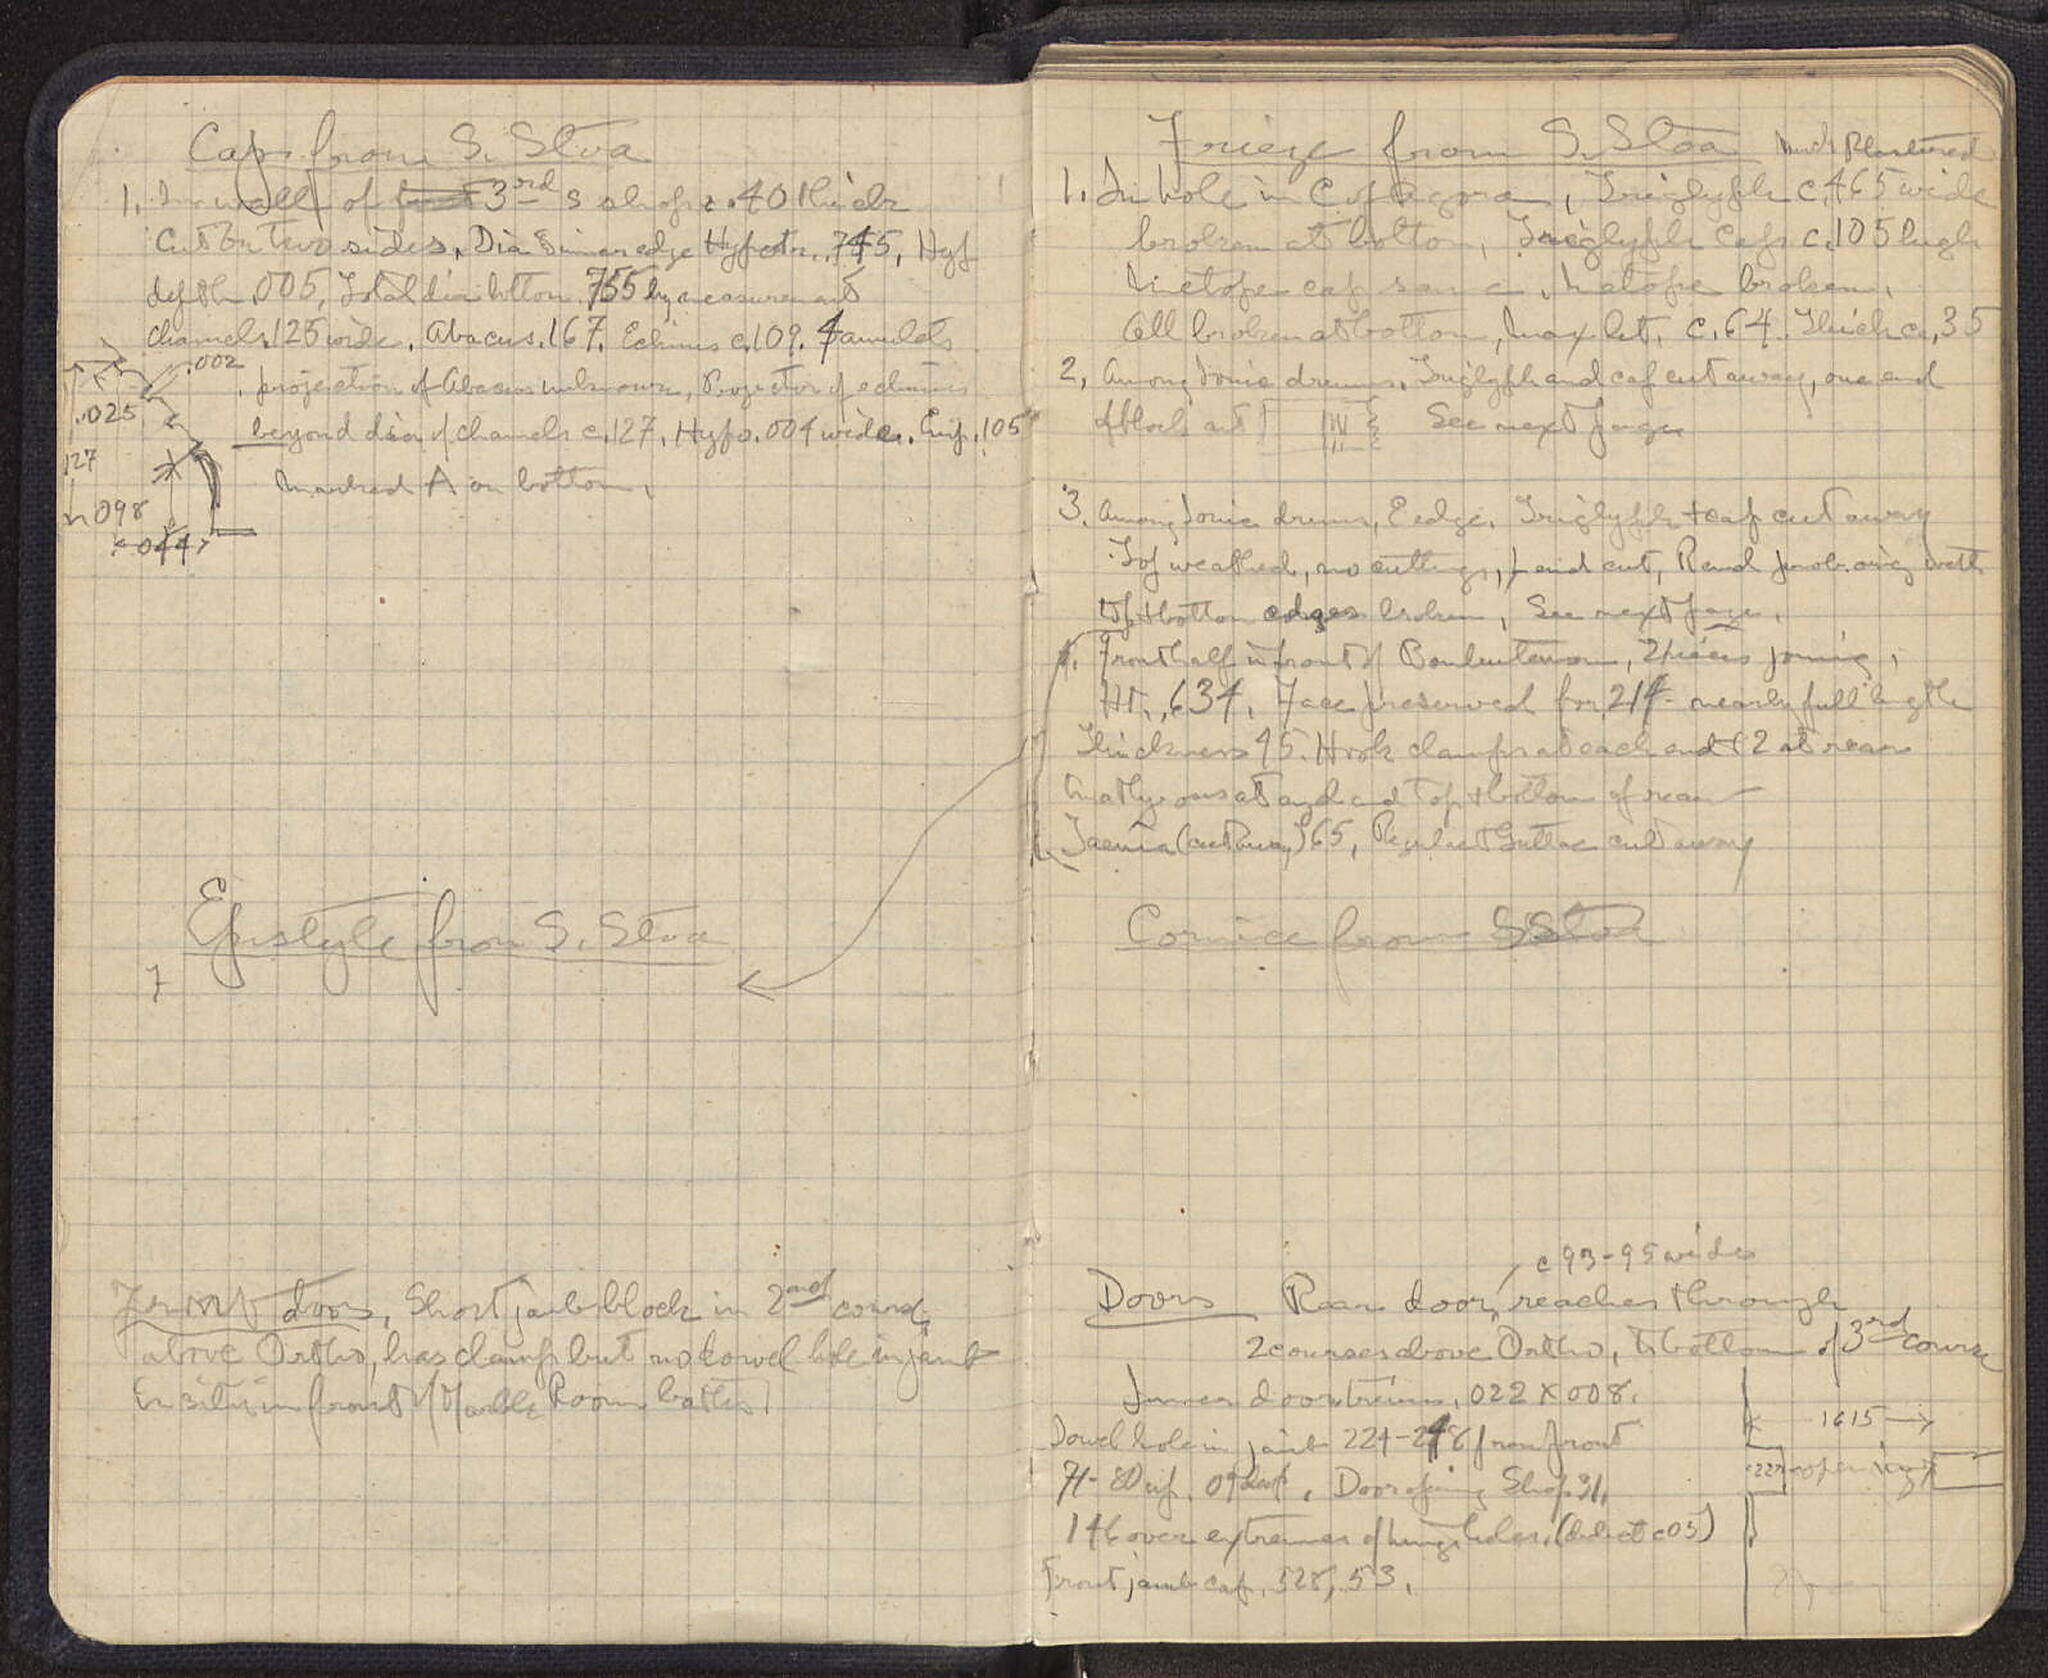 Caps from S. Stoa
1. In wall of 3rd S shop c .40 thick
Cut on two sides. Dia inner edge Hypotr. .745, Hyp
depth .005, Total dia bottom .755 by measurement
Channels .125 wide. Abacus .167. Echinus c .109. 4 annulets
projection of Abacus unknown, Projection of echinus
beyond dia of channels c .127, Hypo .004 wide. .105
Marked A on bottom.
.002
.025
127
098
.044
Epistyle from S. Stoa
Front doors, Short jamb block in 2nd course
above Ortho, has clamp but no dowel hole in jamb
In situ in front of Marble Room baths.
Frieze from S. Stoa Much Plastered
1. In hole in C of Agora, Triglyph c .465 wide
broken at bottom, Triglyph cap c .105 high
Metope cap same, Metope broken.
All broken at bottom, max ht. c .64. Thick c .35
2. Among Ionic drums. Triglyph and cap cut away, one end
of block cut See next page
3. Among Ionic drums, E edge. Triglyph + cap cut away
Top weathered, no cuttings, L end cut, R end prob. orig but
top + bottom edges broken, See next page.
Front half in front of Bouleuterion, 2 pieces joining,
Ht. .634. Face preserved for 214 nearly full length
Thickness 45. Hook clamps at each end + 2 at rear
Anathyrosis at end and top + bottom of rear
Taenia (cut away) 65, Regula + Guttae cut away
Cornice from S Stoa
c 93-95 wide
Doors Rear door, reaches through
2 courses above Ortho, to bottom of 3rd course
Inner door trim, 022 X 008.
Dowel hole in jamb 224-248 from front
Door opening Shop 31,
146 over extremes of hinge holes. (deduct c 05)
Front jamb cap. 528, 53.
1615
opening